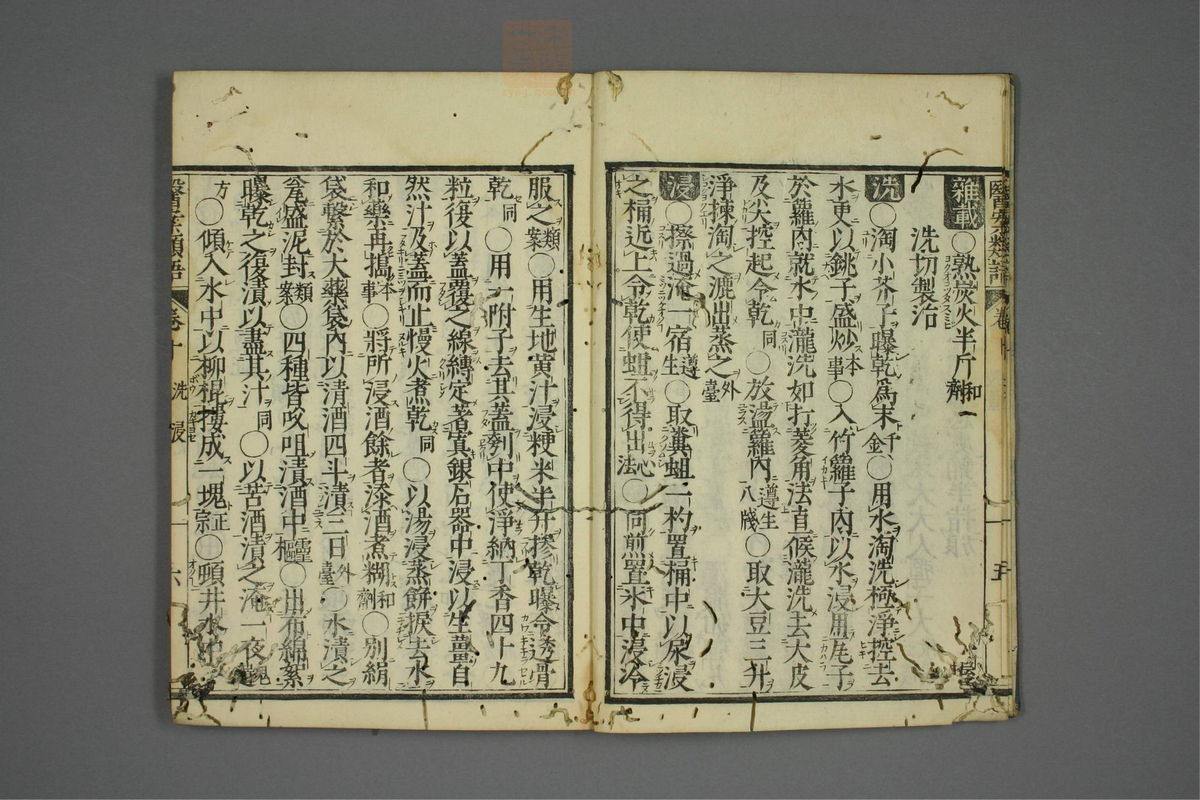 雜載 ○熟炭火半斤 和劑
洗切製治
洗 ○淘小芥子曝乾爲末 千金 ○用水淘洗極淨控去
水更以銚子盛炒 本事 ○入竹籮子內以水浸用尾子
於籮內就水中瀧洗如打菱角法直候瀧洗去大皮
及尖控起令乾 同 ○放湯籮內 遵生八牋 ○取大豆三升
淨揀淘之漉出蒸之 外臺
浸 ○擦過淹一宿 遵生 ○取糞蛆一杓置桶中以尿浸
之桶近上令乾使蛆不得出 心法 ○同煎置水中浸冷
服之 類案 ○用生地黃汁浸粳米半升摻乾曝令透滑
乾 同 ○用一附子去其蓋剜中使淨納丁香四十九
粒復以蓋覆之線縛定著寘銀石器中浸以生薑自
然汁及蓋而止慢火煮乾 同 ○以湯浸蒸餅捩去水
和藥再搗 本事 ○將所浸酒餘者添酒煮糊 和劑 ○別絹
袋繫於大藥袋內以清酒四斗漬三日 外臺 ○水漬之
瓮盛泥封 類案 ○四種皆㕮咀漬酒中 靈樞 ○出布綿絮
曝乾之復漬以盡其汁 同 ○以苦酒漬之淹一夜
方 ○傾入水中以柳棍摟成一塊 正宗 ○頓井水中
醫案類語 卷十 洗 浸 十六